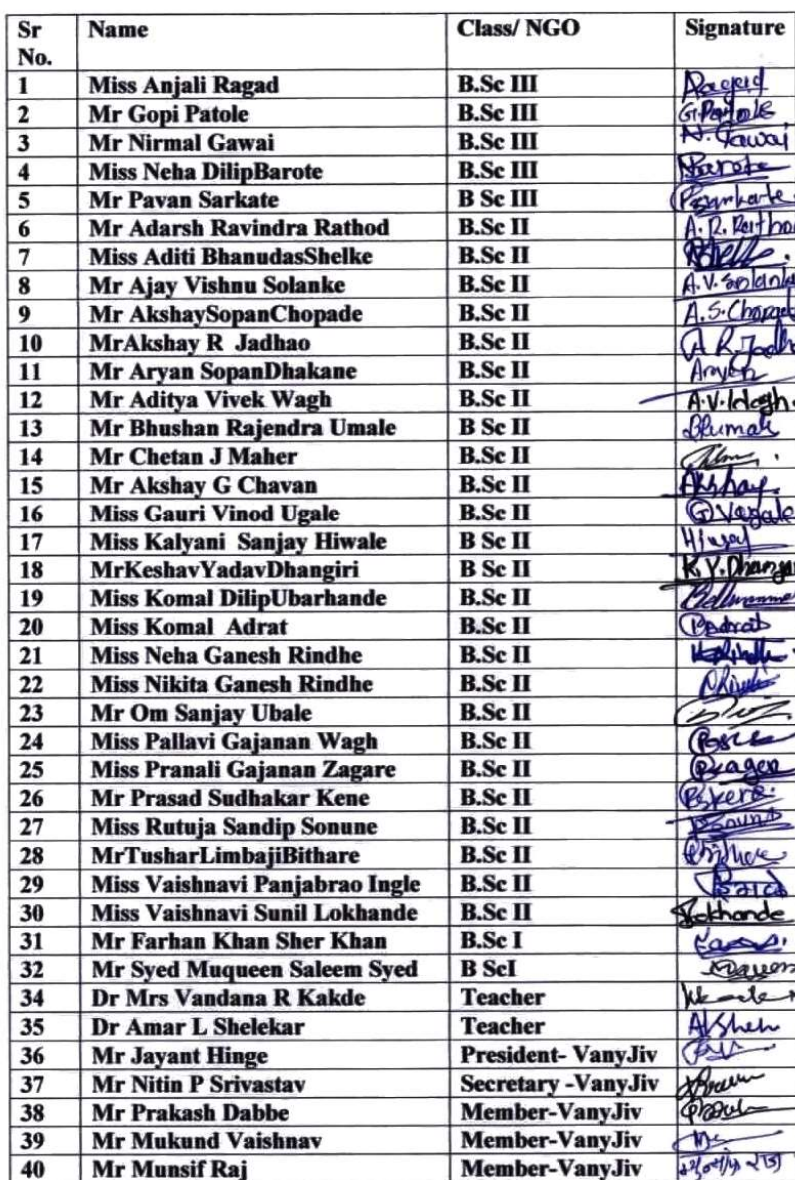 Sr No. Name Class/ NGO Signature
1 Miss Anjali Ragad B.Sc III
2 Mr Gopi Patole B.Sc III G.Patole
3 Mr Nirmal Gawai B.Sc III N. Gawai
4 Miss Neha DilipBarote B.Sc III Barote
5 Mr Pavan Sarkate B Sc III
6 Mr Adarsh Ravindra Rathod B.Sc II A. R. Rathod
7 Miss Aditi BhanudasShelke B.Sc II
8 Mr Ajay Vishnu Solanke B.Sc II A.V. Solanke
9 Mr AkshaySopanChopade B.Sc II A.S.Chopade
10 MrAkshay R Jadhao B.Sc II A R Jadh
11 Mr Aryan SopanDhakane B.Sc II Aryan
12 Mr Aditya Vivek Wagh B.Sc II A.V.Wagh.
13 Mr Bhushan Rajendra Umale B Sc II
14 Mr Chetan J Maher B.Sc II
15 Mr Akshay G Chavan B.Sc II Akshay.
16 Miss Gauri Vinod Ugale B.Sc II
17 Miss Kalyani Sanjay Hiwale B Sc II
18 MrKeshavYadavDhangiri B Sc II K.Y.Dhangar
19 Miss Komal DilipUbarhande B.Sc II
20 Miss Komal Adrat B.Sc II
21 Miss Neha Ganesh Rindhe B.Sc II
22 Miss Nikita Ganesh Rindhe B.Sc II
23 Mr Om Sanjay Ubale B.Sc II
24 Miss Pallavi Gajanan Wagh B.Sc II
25 Miss Pranali Gajanan Zagare B.Sc II
26 Mr Prasad Sudhakar Kene B.Sc II
27 Miss Rutuja Sandip Sonune B.Sc II
28 MrTusharLimbajiBithare B.Sc II
29 Miss Vaishnavi Panjabrao Ingle B.Sc II
30 Miss Vaishnavi Sunil Lokhande B.Sc II Lokhande
31 Mr Farhan Khan Sher Khan B.Sc I
32 Mr Syed Muqueen Saleem Syed B ScI
34 Dr Mrs Vandana R Kakde Teacher
35 Dr Amar L Shelekar Teacher
36 Mr Jayant Hinge President- VanyJiv
37 Mr Nitin P Srivastav Secretary -VanyJiv
38 Mr Prakash Dabbe Member-VanyJiv
39 Mr Mukund Vaishnav Member-VanyJiv
40 Mr Munsif Raj Member-VanyJiv